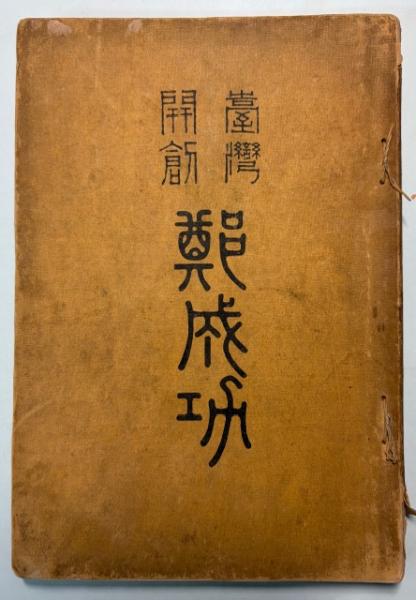 臺灣
開創
鄭成功